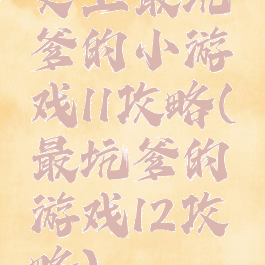 史上最坑
爹的小游
戏11攻略(
最坑爹的
游戏12攻
略)